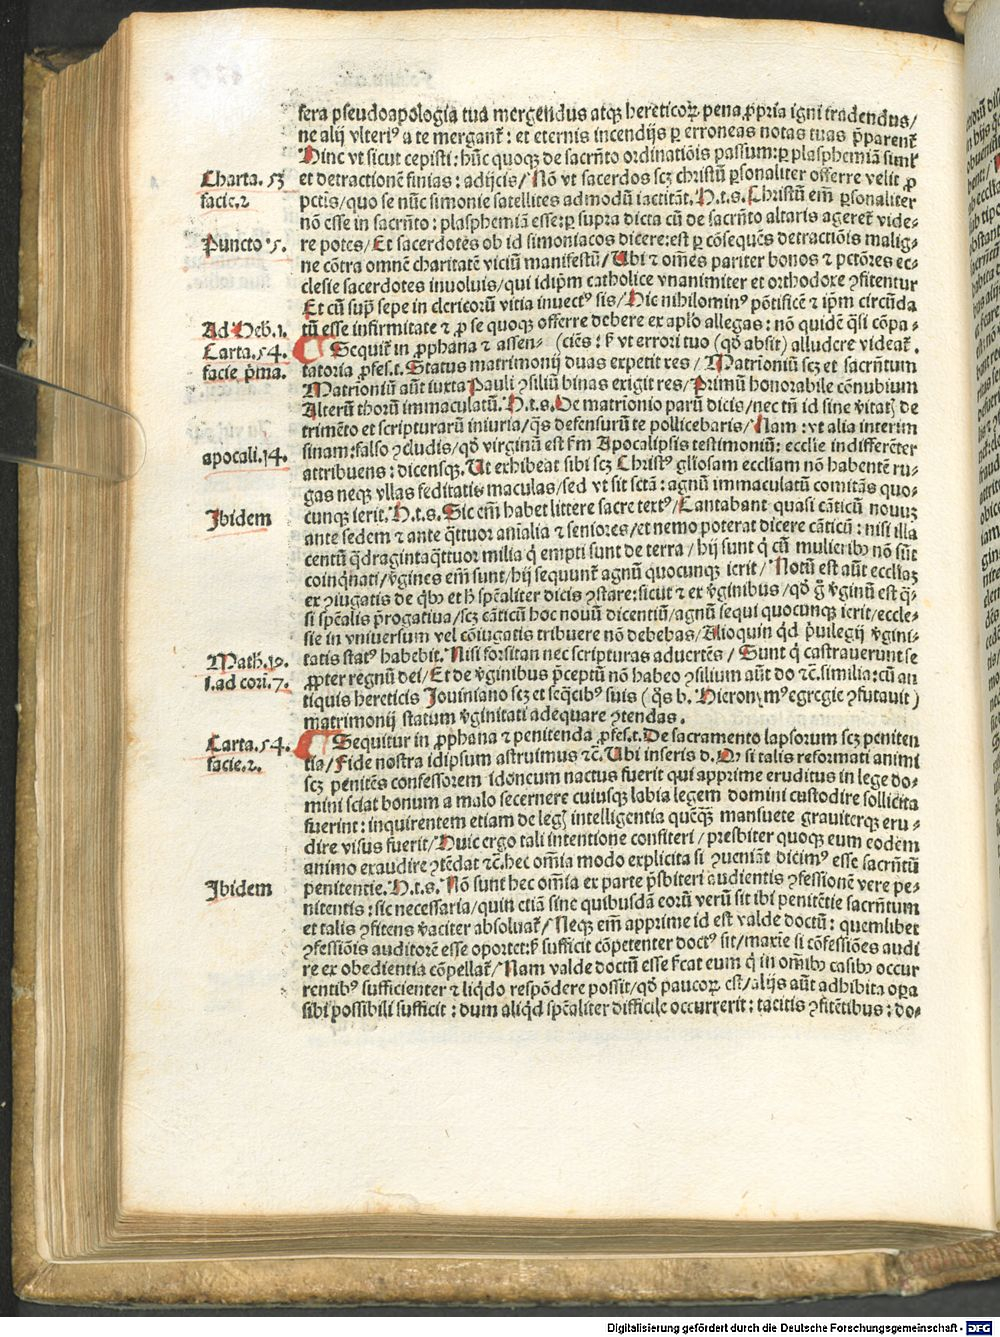 fera pseudoapologia tua mergendus atqꝫ hereticoꝝ pena ꝓpria igni tradendus/
ne alij vlteriꝰ a te mergant̃: et eternis incendijs ꝑ erroneas notas tuas p̃parent̃
Hinc vt sicut cepisti: hũc quoqꝫ de sacrñto ordinatiõis passum: ꝑ plasphemiã simul
Charta. 53
et detractionẽ finias: adijcis/ Nõ vt sacerdos scꝫ christũ ꝑsonaliter offerre velit ꝓ
facie.2
pctĩs/quo se nũc simonie satellites admodũ iactitãt. H.t.s. Christũ em̃ ꝑsonaliter
nõ esse in sacrñto: plasphemiã esse: ꝑ supra dicta cũ de sacrñto altaris ageret̃ vide-
Puncto .5.
re potes/ Et sacerdotes ob id simoniacos dicere: est ꝑ cõsequẽs detractiõis malig-
ne cõtra omnẽ charitatẽ viciũ manifestũ/ Ubi ⁊ om̃es pariter bonos ⁊ pctõres ec-
clesie sacerdotes inuoluis/qui idip̃m catholice vnanimiter et orthodoxe ꝓfitentur
Et cũ sup̃ sepe in clericorũ vitia inuectꝰ sis/ Hic nihilominꝰ põtificẽ ⁊ ip̃m circũda
Ad Heb. 1.
tũ esse infirmitate ⁊ ꝓ se quoqꝫ offerre debere ex apl̃o allegas: nõ quidẽ q̃si cõpa-
Carta. 54.
Sequit̃ in ꝓphana ⁊ assen- (ciẽs: s̃ vt errori tuo (qd̃ absit) alludere videat̃.
facie p̃ma.
tatoria ꝓfes.t. Status matrimonij duas expetit res/ Matrioniũ scꝫ et sacrñtum
Matrioniũ aũt iuxta Pauli ꝯsiliũ binas exigit res/ Primũ honorabile cõnubium
Alterũ thorũ immaculatũ. H.t.s. De matrionio parũ dicis/nec tñ id sine v̓itatꝭ de
trimẽto et scripturarũ iniuria/q̃s defensurũ te pollicebaris/ Nam: vt alia interim
apocali.14.
sinam: falso ꝯcludis/ qd̃ virginũ est s̃m Apocalipsis testimoniũ: ecclie indifferẽter
attribuens: dicensqꝫ. Ut exhibeat sibi scꝫ Christꝰ gl̃iosam eccliam nõ habentẽ ru-
gas neqꝫ vllas feditatis maculas/sed vt sit sctã: agnũ immaculatũ comitãs quo-
Ibidem
cunqꝫ ierit. H.t.s. Sic em̃ habet littere sacre textꝰ/ Cantabant quasi cãticũ nouuꝫ
ante sedem ⁊ ante q̃ttuor aĩalia ⁊ seniores/et nemo poterat dicere cãticũ: nisi illa
centũ q̃dragintaq̃ttuor milia q̃ empti sunt de terra/ hij sunt q̃ cũ mulieribꝰ nõ sũt
coinq̃nati/ v̓gines em̃ sunt/hij sequunt̃ agnũ quocunqꝫ ierit/ Notũ est aũt eccliaꝫ
ex ꝯiugatis de q̃bꝰ et h̃ sp̃ealiter dicis ꝯstare: sicut ⁊ ex v̓ginibus/qd̃ g̃ v̓ginũ est q̃-
si sp̃ealis p̃rogatiua/scꝫ cãticũ hoc nouũ dicentiũ/agnũ sequi quocunqꝫ ierit/eccle-
sie in vniuersum vel cõiugatis tribuere nõ debebas/ Alioquin qd̃ p̃uilegij v̓gini-
Math. 19.
tatis statꝰ habebit. Nisi forsitan nec scripturas aduertẽs/ Sunt q̃ castrauerunt se
1.ad cori. 7.
ꝓpter regnũ dei/ Et de v̓ginibus p̃ceptũ nõ habeo ꝯsilium aũt do ⁊c̃. similia: cũ an
tiquis hereticis Jouiniano scꝫ et seq̃cibꝰ suis (q̃s b. Hieronymꝰ egregie ꝯfutauit)
matrimonij statum v̓ginitati adequare ꝯtendas.
Carta. 54.
Sequitur in ꝓphana ⁊ penitenda ꝓfes.t. De sacramento lapsorum scꝫ peniten
facie.2.
tia/ Fide nostra idipsum astruimus ⁊c̃. Ubi inseris d. Qꝫ si talis reformati animi
scꝫ penitẽs confessorem idoneum nactus fuerit qui apprime eruditus in lege do-
mini sciat bonum a malo secernere cuiusqꝫ labia legem domini custodire sollicita
fuerint: inquirentem etiam de legꝭ intelligentia quẽq̃ꝫ mansuete grauiterqꝫ eru-
dire visus fuerit/ Huic ergo tali intentione confiteri/ presbiter quoqꝫ eum eodẽm
animo exaudire ꝯtẽdat ⁊c̃. hec om̃ia modo explicita si ꝯueniãt dicimꝰ esse sacrñtũ
Ibidem
penitentie. H.t.s. Nõ sunt hec om̃ia ex parte p̃sbiteri audientis ꝯfessionẽ vere pe-
nitentis: sic necessaria/quin etiã sine quibusdã eorũ verũ sit ibi penitẽtie sacrñtum
et talis ꝯfitens v̓aciter absoluat̃/ Neqꝫ em̃ apprime id est valde doctũ: quemlibet
ꝯfessiõis auditorẽ esse oportet: s̃ sufficit cõpetenter doctꝰ sit/maxĩe si cõfessiões audi
re ex obedientia cõpellat̃/ Nam valde doctũ esse s̃cat eum q̃ in om̃ibꝰ casibꝰ occur
rentibꝰ sufficienter ⁊ liq̃do respõdere possit/qd̃ paucoꝝ est/alijs aũt adhibita oꝑa
sibi possibili sufficit: dum aliq̃d sp̃ealiter difficile occurrerit: tacitis ꝯfitẽtibus: do-
Digitalisierung gefördert durch die Deutsche Forschungsgemeinschaft - DFG